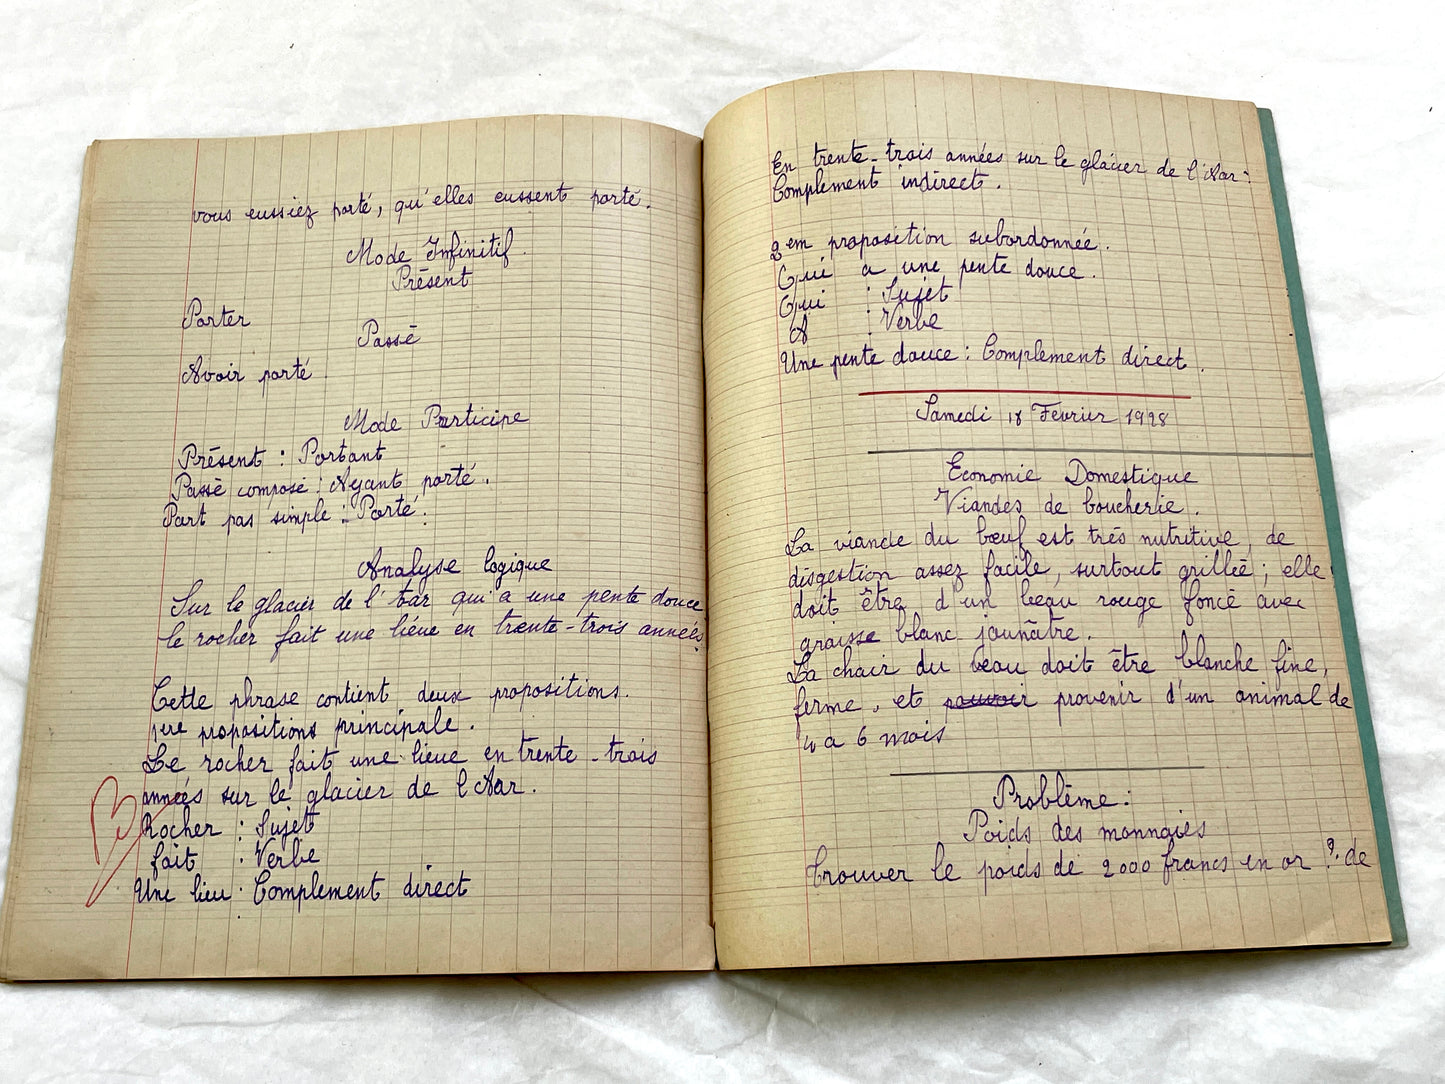 vous eussiez porté, qu'elles eussent porté.
Mode Infinitif.
Présent
Porter
Passé
Avoir porté
Mode Participe
Présent : Portant
Passé composé : Ayant porté.
Part pas simple : Porté.
Analyse logique
Sur le glacier de l'Aar qui a une pente douce
le rocher fait une liéue en trente-trois années.
Cette phrase contient deux propositions.
1ere propositions principale.
Le rocher fait une lieue en trente-trois
années sur le glacier de l'Aar.
Rocher : Sujet
fait : Verbe
Une lieu : Complement direct
En trente-trois années sur le glacier de l'Aar :
Complement indirect.
2em proposition subordonnée.
Qui a une pente douce.
Qui : Sujet
A : Verbe
Une pente douce : Complement direct.
Samedi 18 Fevrier 1928
Economie Domestique
Viandes de boucherie.
La viande du bœuf est très nutritive, de
disgestion assez facile, surtout grillée ; elle
doit être d'un beau rouge foncé avec
graisse blanc jaunâtre.
La chair du veau doit être blanche fine,
ferme, et pouvoir provenir d'un animal de
4 a 6 mois
Problême :
Poids des monnaies
Trouver le poids de 2000 francs en or ? de